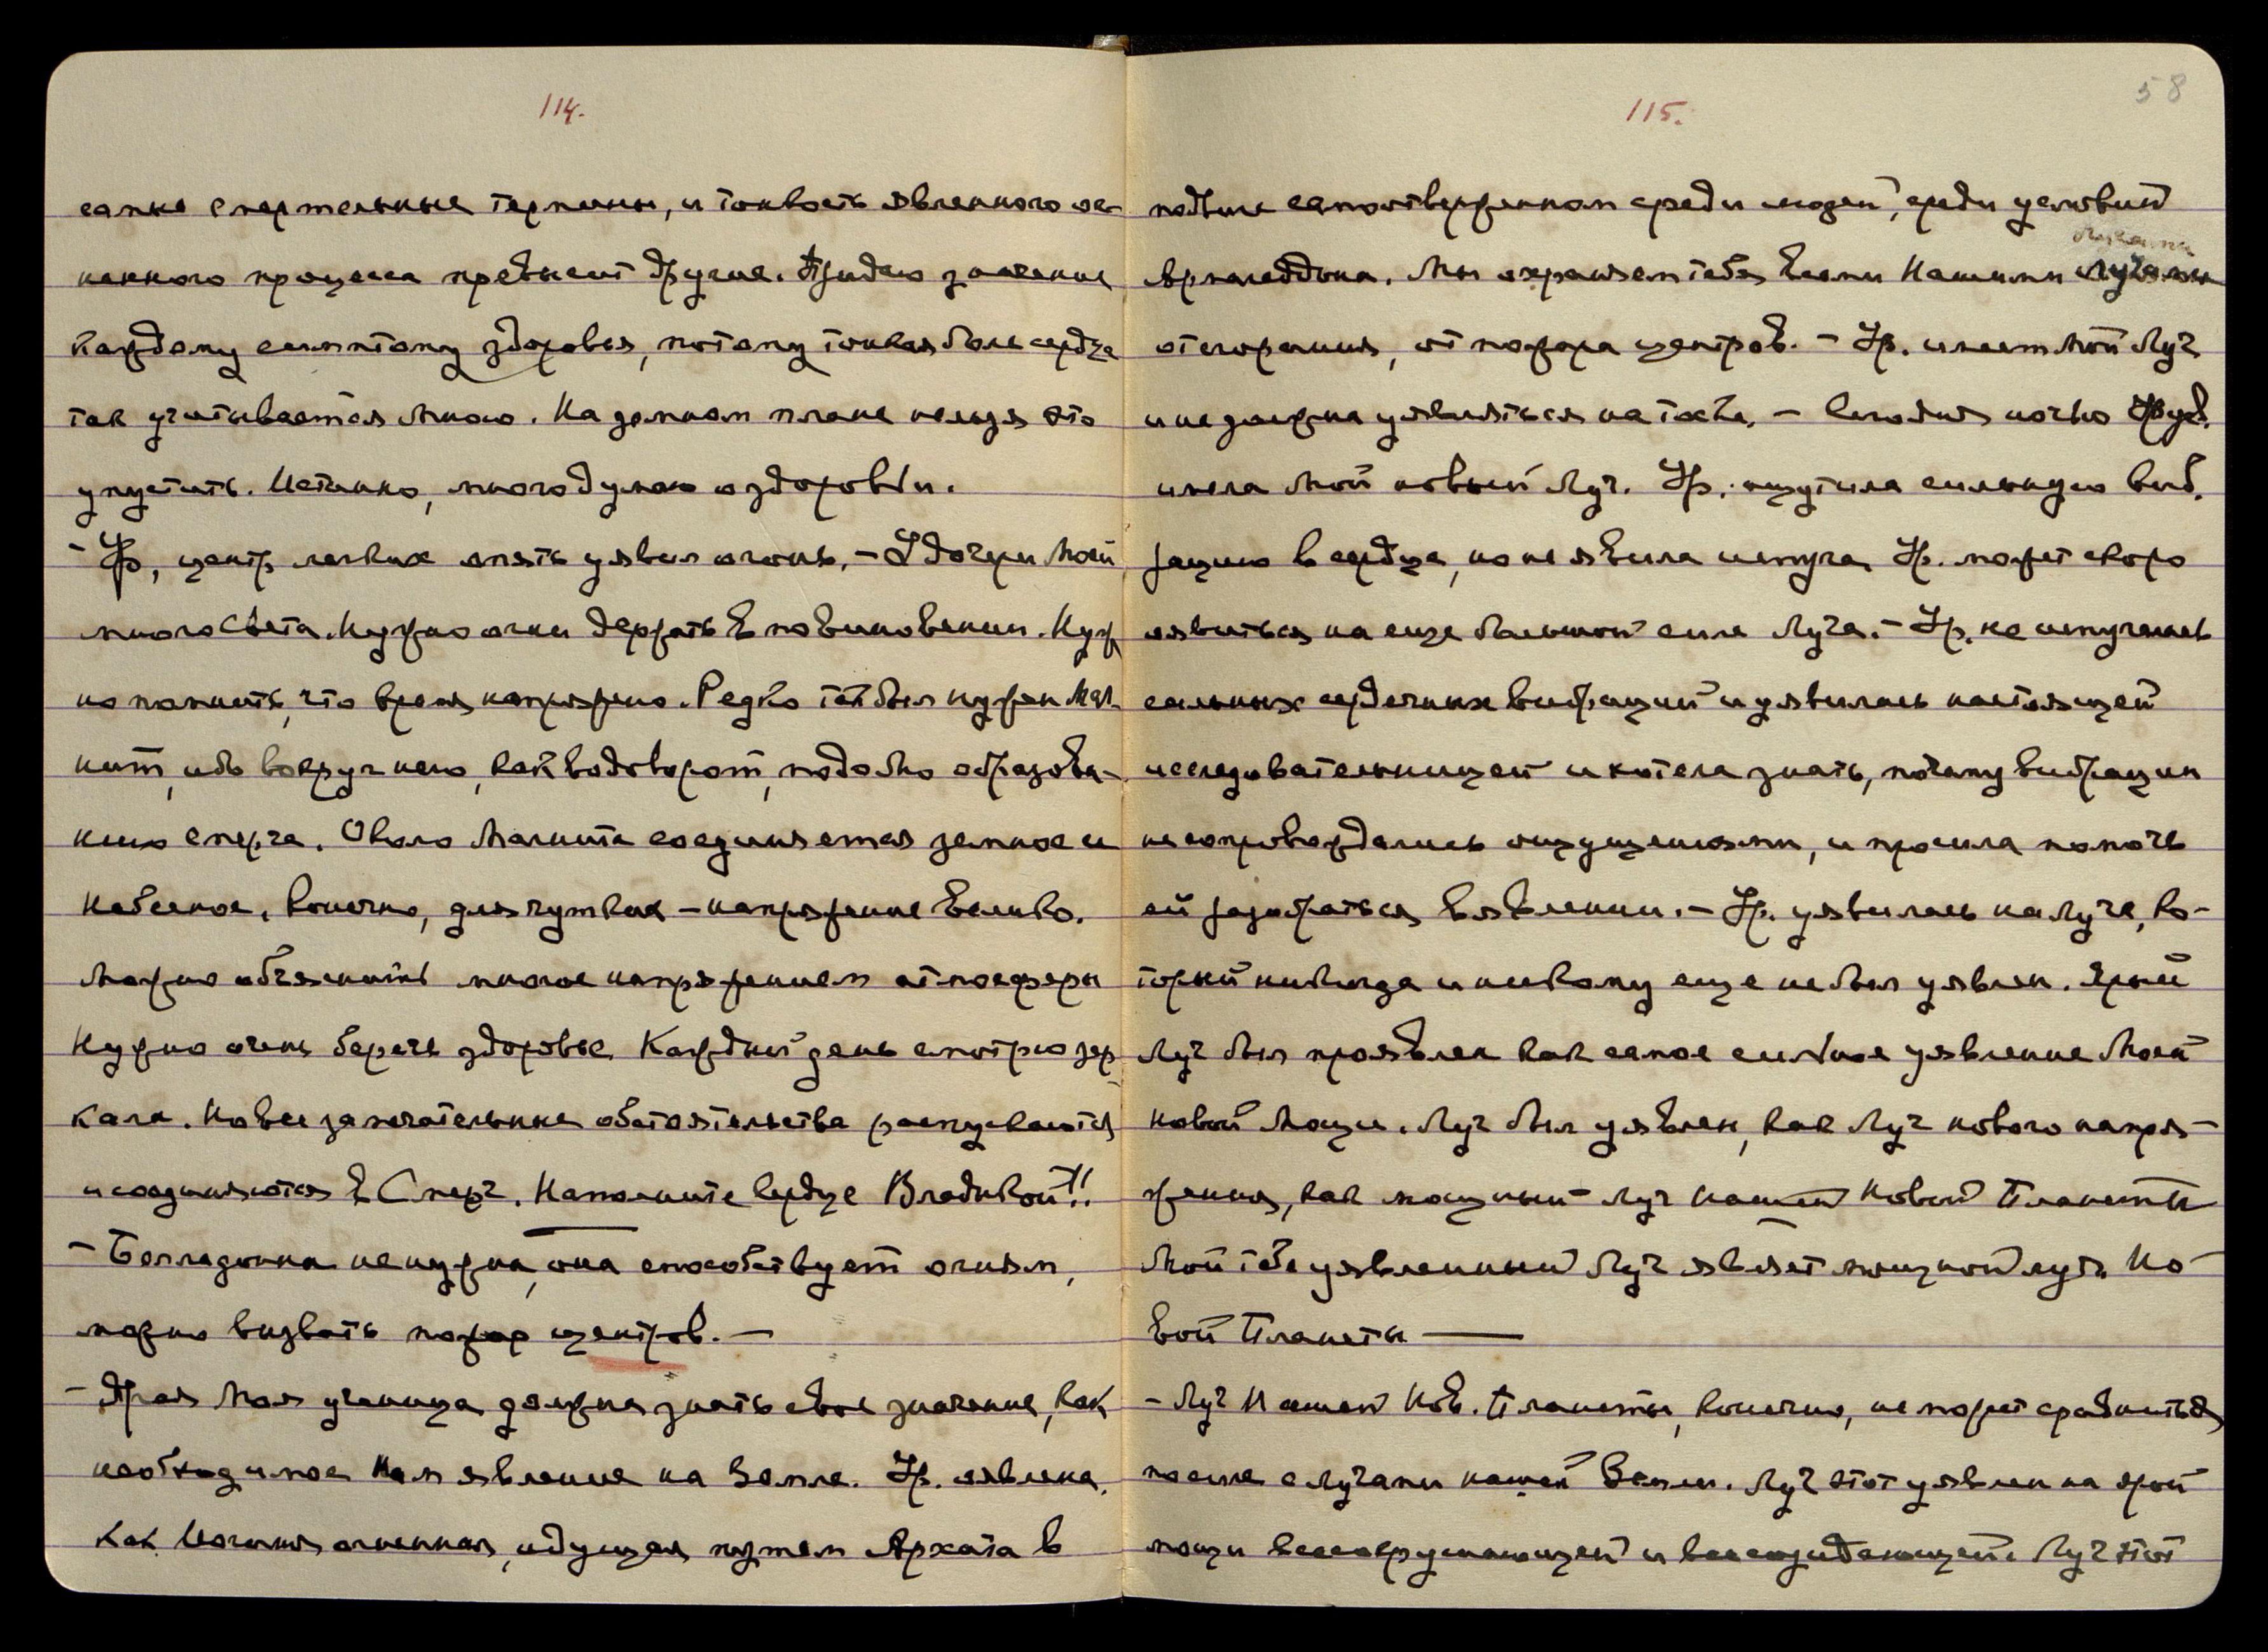 114.
самые смертельные термины, и тонкость явленного ог-
ненного процесса превысит другие. Придаю значение
каждому симптому здоровья, потому тонкая боль сердца
так учитывается Мною. На земном плане нельзя это
упустить. Истинно, много думаю о здоровьи.
- Ур., центр легких опять уявил огонь. - У дочери Моей
много Света. Нужно огни держать в повиновении. Нуж
но помнить, что время напряжено. Редко так был нужен Маг
нит, ибо вокруг него, как водоворот, подобно образова-
нию смерча. Около Магнита соединяется земное и
Небесное. Конечно, для чутких - напряжение велико.
Можно объяснить многое напряжением атмосферы
Нужно очень беречь здоровье. Каждый день смотрю зер
кала. Новые замечательные обстоятельства распускаются
и соединяются в Смерч. Наполните сердце Владыкой!!
- Белладонна не нужна, она способствует огням,
можно вызвать пожар центров. -
- Ярая Моя ученица должна знать свое значение, как
необходимое Нам явление на Земле. Ур. явлена,
как Иогиня огненная, идущая путем Архата в
115.
58
подвиге самоотверженном среди людей, среди условий
Армагеддона. Мы охраняем тебя всеми Нашими Лучами
от сгорания, от пожара центров. - Ур. имеет Мой Луч
и не должна уявляться на тоске. - Сегодня ночью Ур.
имела Мой новый Луч. Ур. ощутила сильную виб.
рацию в сердце, но не явила испуга. Ур. может скоро
явиться на еще большой силе Луча. - Ур. не испугалась
сильных сердечных вибраций и уявилась настоящей
исследовательницей и хотела знать, почему вибрации
не сопровождались ощущениями, и просила помочь
ей разобраться в явлении. - Ур. уявилась на Луче, ко-
торый никогда и никому еще не был уявлен. Ярый
Луч был проявлен как самое сильное уявление Моей
новой Мощи. Луч был уявлен, как Луч нового напря-
жения, как мощный луч Нашей Новой Планеты
Мой тебе уявленный Луч являет мощный луч Но
вой Планеты —
- Луч Нашей Нов. Планеты, конечно, не может сравниться
по силе с лучами нашей Земли. Луч этот уявлен на ярой
мощи всесокрушающей и всесозидающей. Луч этот